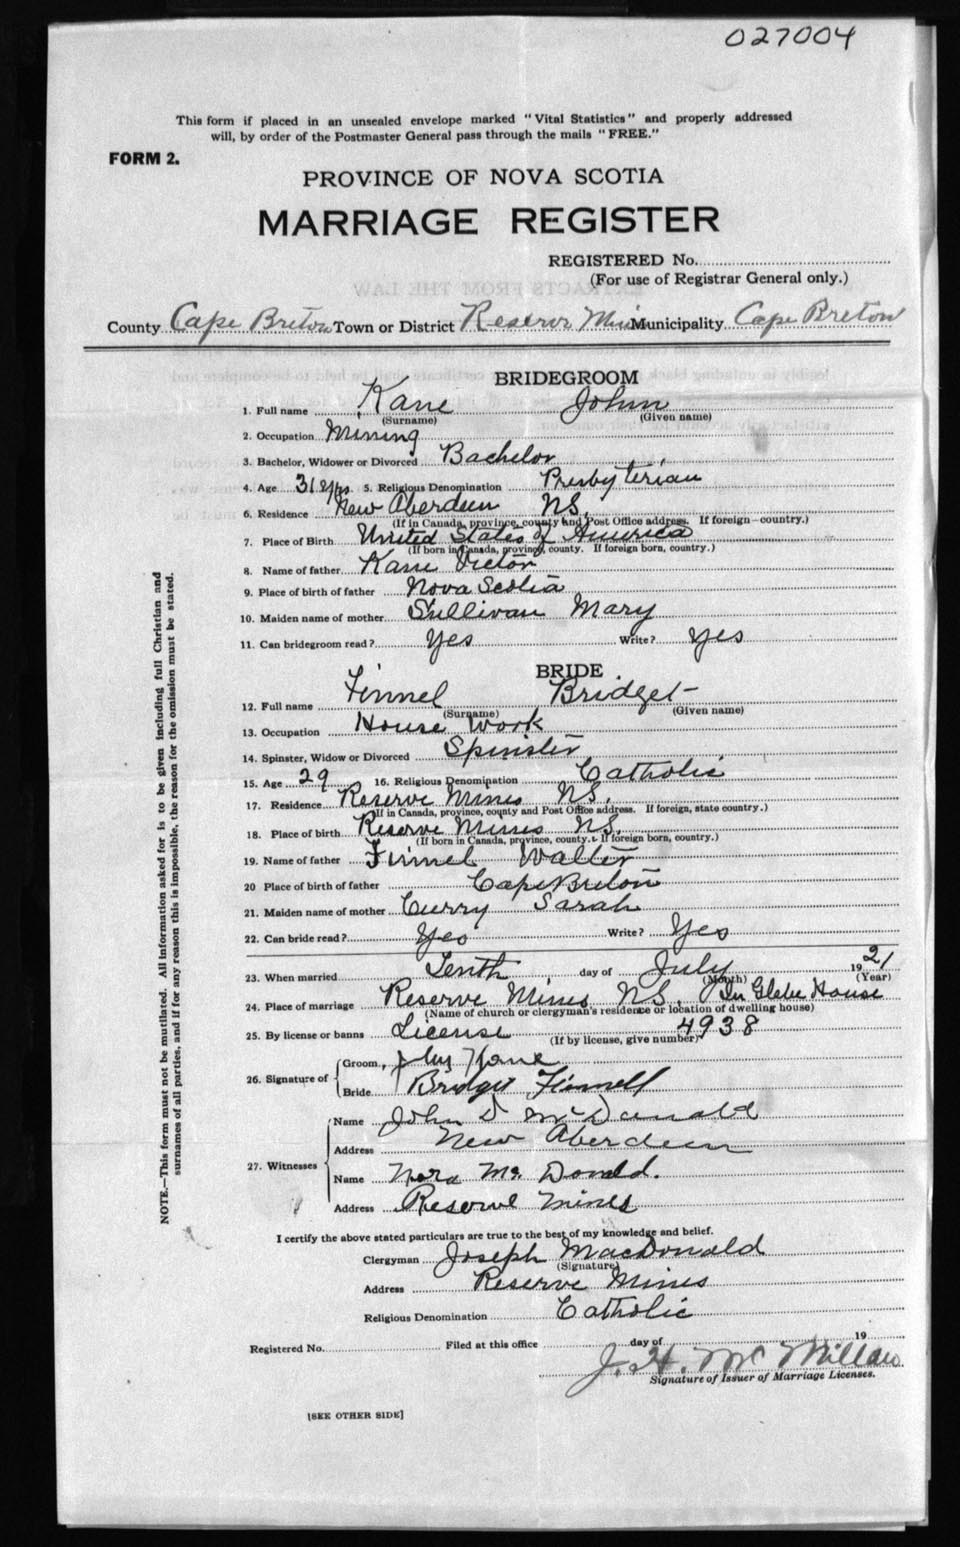 027004
This form if placed in an unsealed envelope marked "Vital Statistics" and properly addressed
will, by order of the Postmaster General pass through the mails "FREE."
FORM 2.
PROVINCE OF NOVA SCOTIA
MARRIAGE REGISTER
REGISTERED No.
(For use of Registrar General only.)
County Cape Breton Town or District Reserve Mines Municipality Cape Breton
BRIDEGROOM
1. Full name Kane John
(Surname) (Given name)
2. Occupation Mining
3. Bachelor, Widower or Divorced Bachelor
4. Age 31 yrs 5. Religious Denomination Presbyterian
6. Residence New Aberdeen NS.
(If in Canada, province, county and Post Office address. If foreign—country.)
7. Place of Birth United States of America
(If born in Canada, province, county. If foreign born, country.)
8. Name of father Kane Victor
9. Place of birth of father Nova Scotia
10. Maiden name of mother Sullivan Mary
11. Can bridegroom read? Yes Write? Yes
BRIDE
12. Full name Finnel Bridget
(Surname) (Given name)
13. Occupation House Work
14. Spinster, Widow or Divorced Spinster
15. Age 29 16. Religious Denomination Catholic
17. Residence Reserve Mines NS.
(If in Canada, province, county and Post Office address. If foreign, state country.)
18. Place of birth Reserve Mines NS.
(If born in Canada, province, county. If foreign born, country.)
19. Name of father Finnel Walter
20 Place of birth of father Cape Breton
21. Maiden name of mother Curry Sarah
22. Can bride read? Yes Write? Yes
23. When married Tenth day of July 1921
(Month) (Year)
24. Place of marriage Reserve Mines NS. In Glebe House
(Name of church or clergyman's residence or location of dwelling house)
25. By license or banns License 4938
(If by license, give number)
26. Signature of Groom, John Kane
Bride Bridget Finnell
27. Witnesses Name John D McDonald
Address New Aberdeen
Name Nora Mc Donald.
Address Reserve Mines
I certify the above stated particulars are true to the best of my knowledge and belief.
Clergyman Joseph MacDonald
(Signature)
Address Reserve Mines
Religious Denomination Catholic
Registered No. Filed at this office day of 19
J. H. McMillan
Signature of Issuer of Marriage Licenses.
[SEE OTHER SIDE]
NOTE.—This form must not be mutilated. All information asked for is to be given including full Christian and
surnames of all parties, and if for any reason this is impossible, the reason for the omission must be stated.